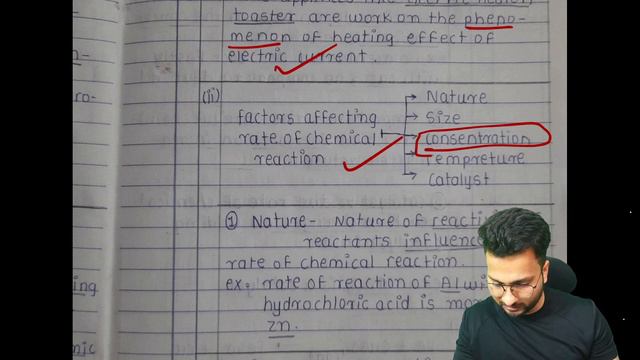 toaster are work on the pheno-
menon of heating effect of
electric current.
(ii)
factors affecting
rate of chemical
reaction
Nature
Size
consentration
Tempreture
Catalyst
① Nature- Nature of
reactants
rate of chemical reaction.
ex. rate of reaction of Al
hydrochloric acid is
zn.
ing